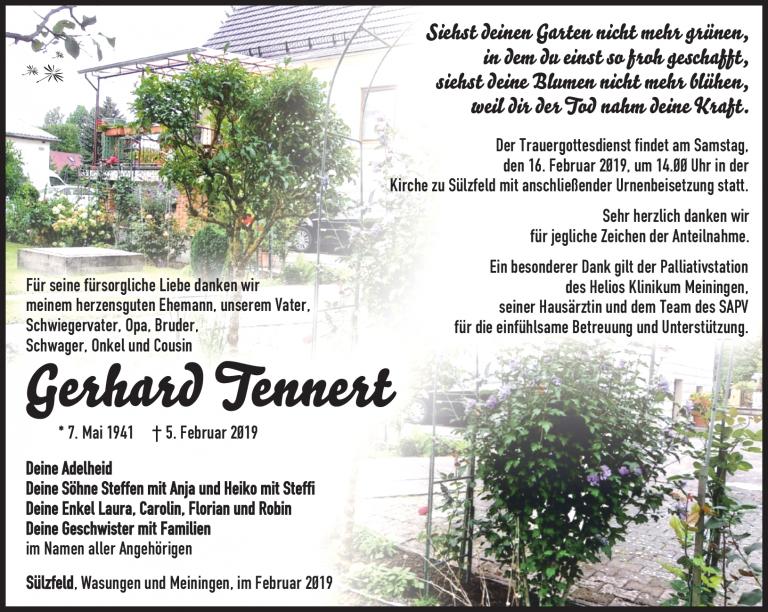 Siehst deinen Garten nicht mehr grünen,
in dem du einst so froh geschafft,
siehst deine Blumen nicht mehr blühen,
weil dir der Tod nahm deine Kraft.
Der Trauergottesdienst findet am Samstag,
den 16. Februar 2019, um 14.00 Uhr in der
Kirche zu Sülzfeld mit anschließender Urnenbeisetzung statt.
Sehr herzlich danken wir
für jegliche Zeichen der Anteilnahme.
Ein besonderer Dank gilt der Palliativstation
des Helios Klinikum Meiningen,
seiner Hausärztin und dem Team des SAPV
für die einfühlsame Betreuung und Unterstützung.
Für seine fürsorgliche Liebe danken wir
meinem herzensguten Ehemann, unserem Vater,
Schwiegervater, Opa, Bruder,
Schwager, Onkel und Cousin
Gerhard Tennert
* 7. Mai 1941 † 5. Februar 2019
Deine Adelheid
Deine Söhne Steffen mit Anja und Heiko mit Steffi
Deine Enkel Laura, Carolin, Florian und Robin
Deine Geschwister mit Familien
im Namen aller Angehörigen
Sülzfeld, Wasungen und Meiningen, im Februar 2019